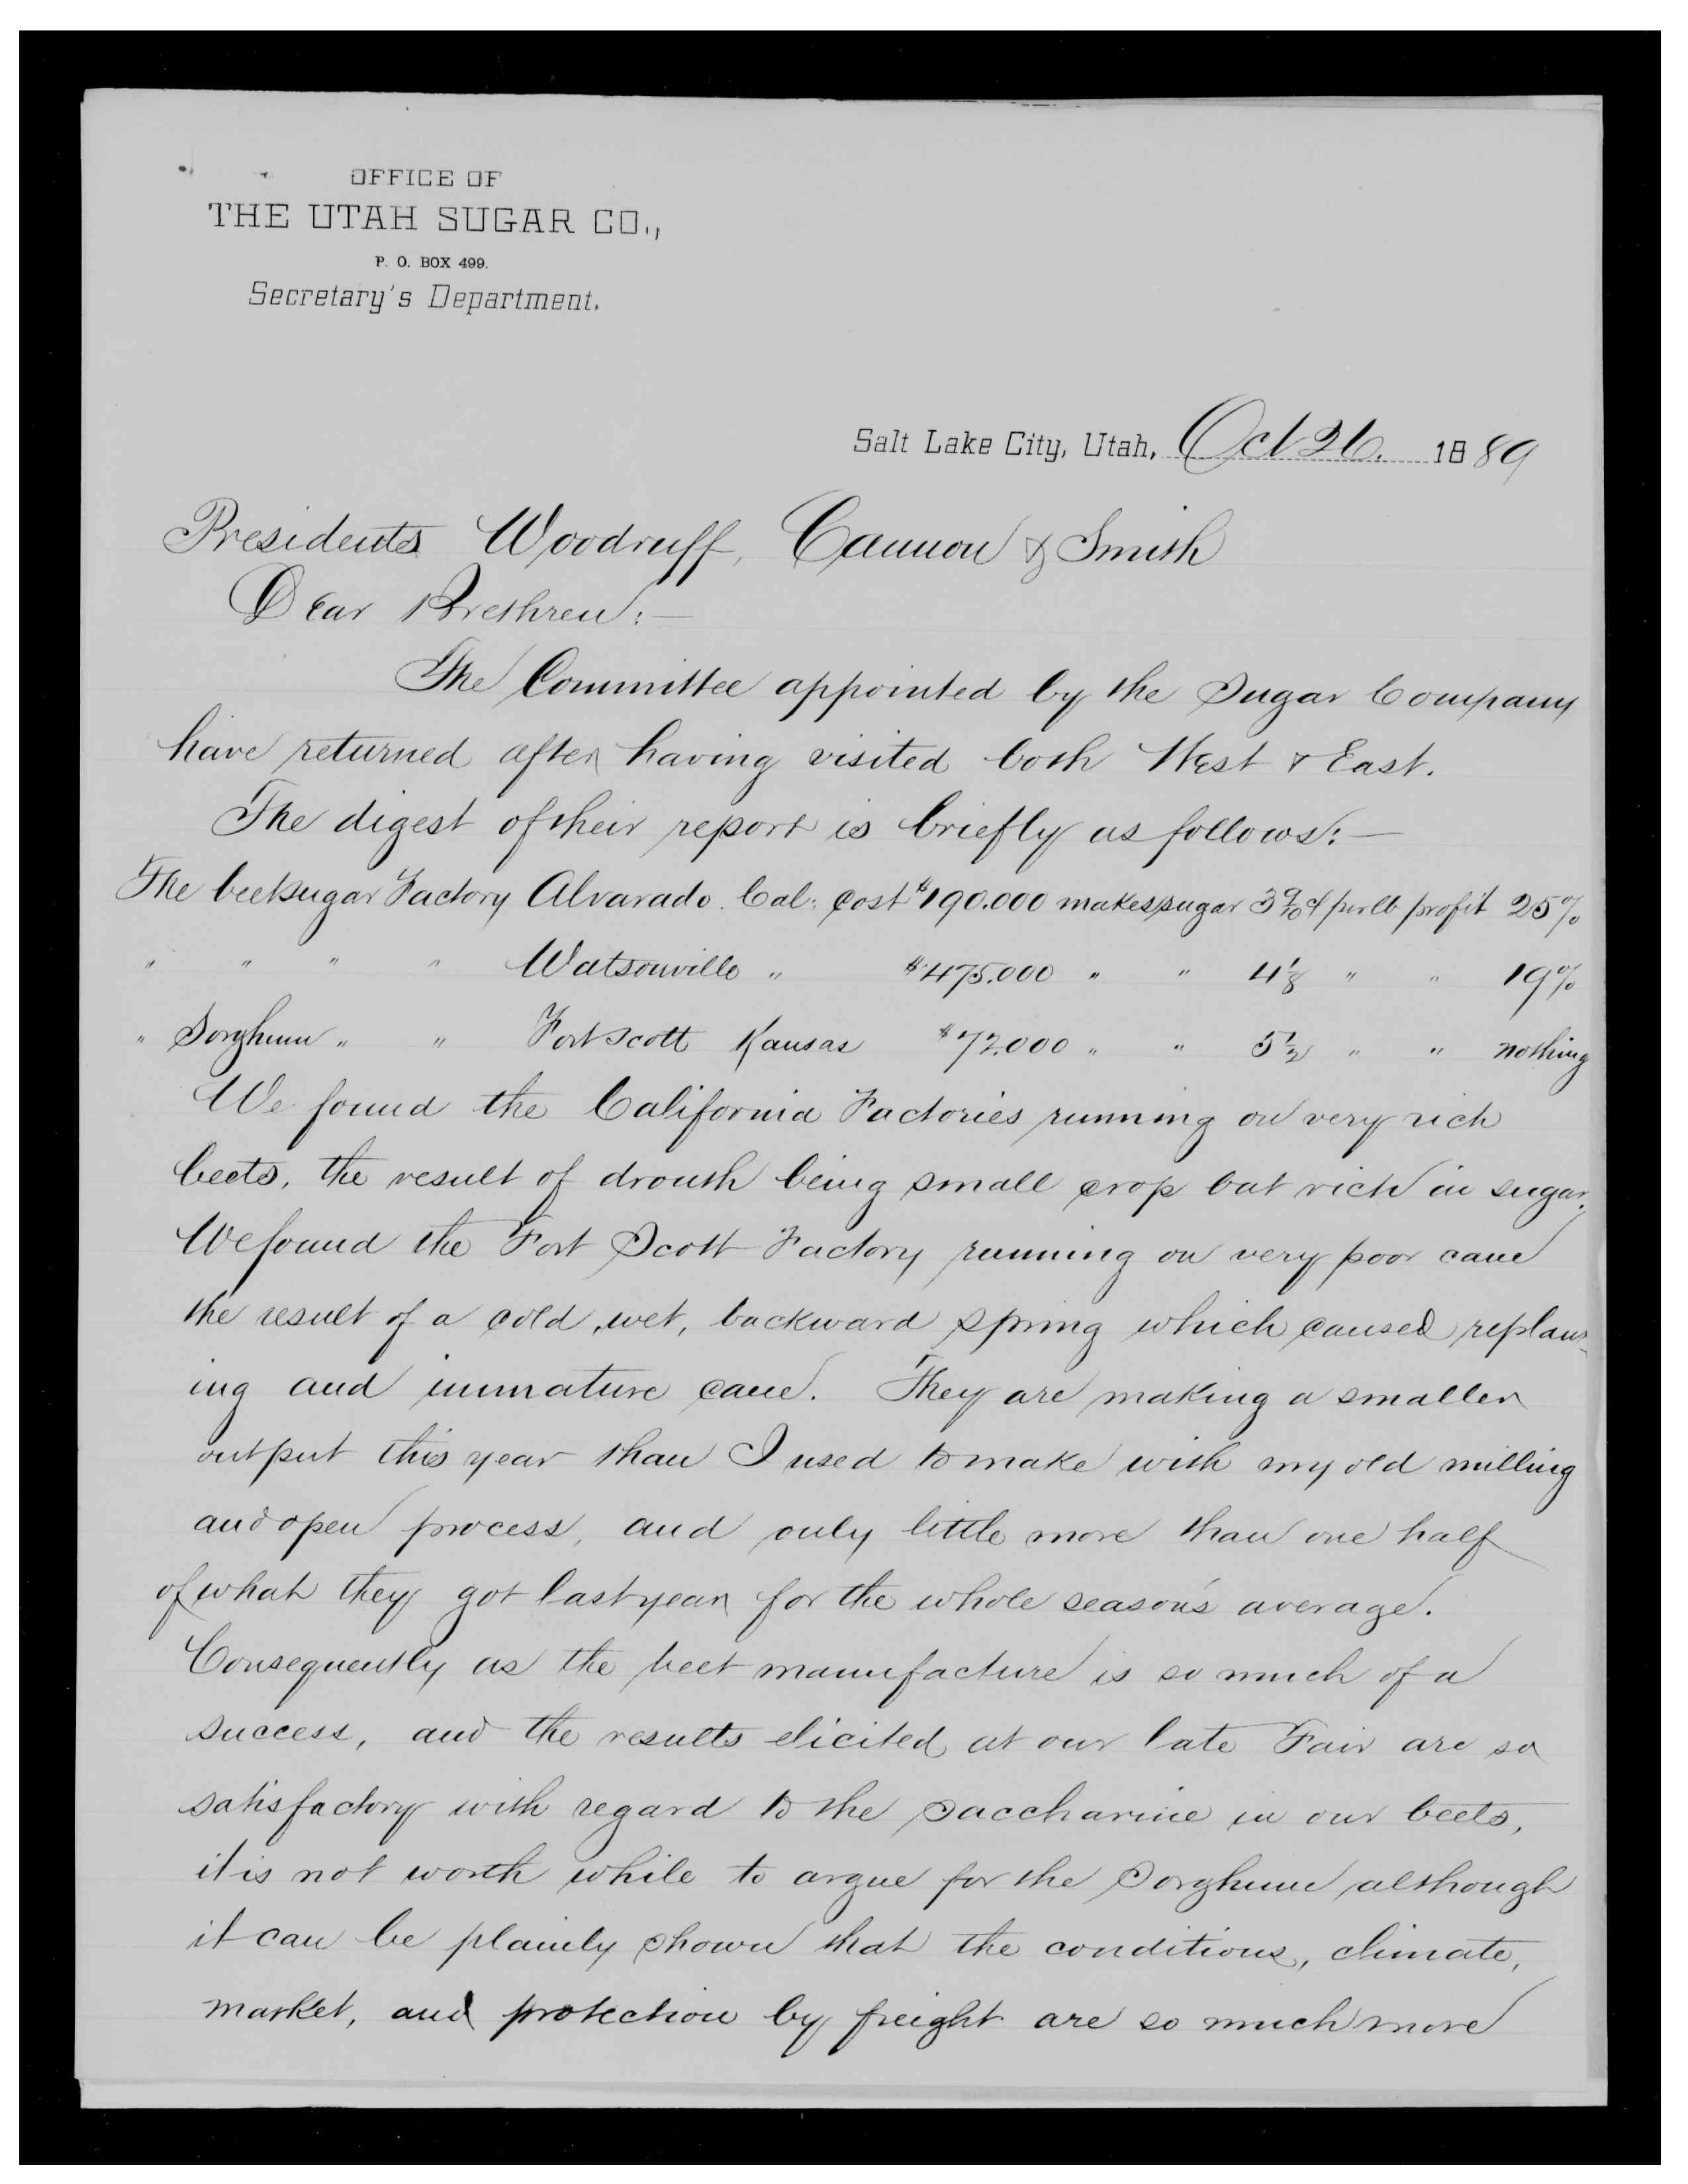 OFFICE OF
THE UTAH SUGAR CO.,
P. O. BOX 499.
Secretary's Department.
Salt Lake City, Utah, Oct 26. 1889
Presidents Woodruff, Cannon & Smith
Dear Brethren:—
The Committee appointed by the Sugar Company
have returned after having visited both West & East.
The digest of their report is briefly as follows:—
The beetsugar Factory Alvarado. Cal: cost $190.000 makes sugar 3 9/10 ¢ per lb profit 25%
" " " " Watsonville " $475.000 " " 4 1/8 " " 19%
" Sorghum " " Fort Scott Kansas $72.000 " " 5 1/2 " " nothing
We found the California Factories running on very rich
beets, the result of drouth being small crop but rich in sugar.
We found the Fort Scott Factory running on very poor cane
the result of a cold, wet, backward spring which caused replant-
ing and immature cane. They are making a smaller
output this year than I used to make with my old milling
and open process, and only little more than one half
of what they got last year for the whole season's average.
Consequently as the beet manufacture is so much of a
success, and the results elicited at our late Fair are so
satisfactory with regard to the saccharine in our beets,
it is not worth while to argue for the Sorghum although
it can be plainly shown that the conditions, climate,
market, and protection by freight are so much more